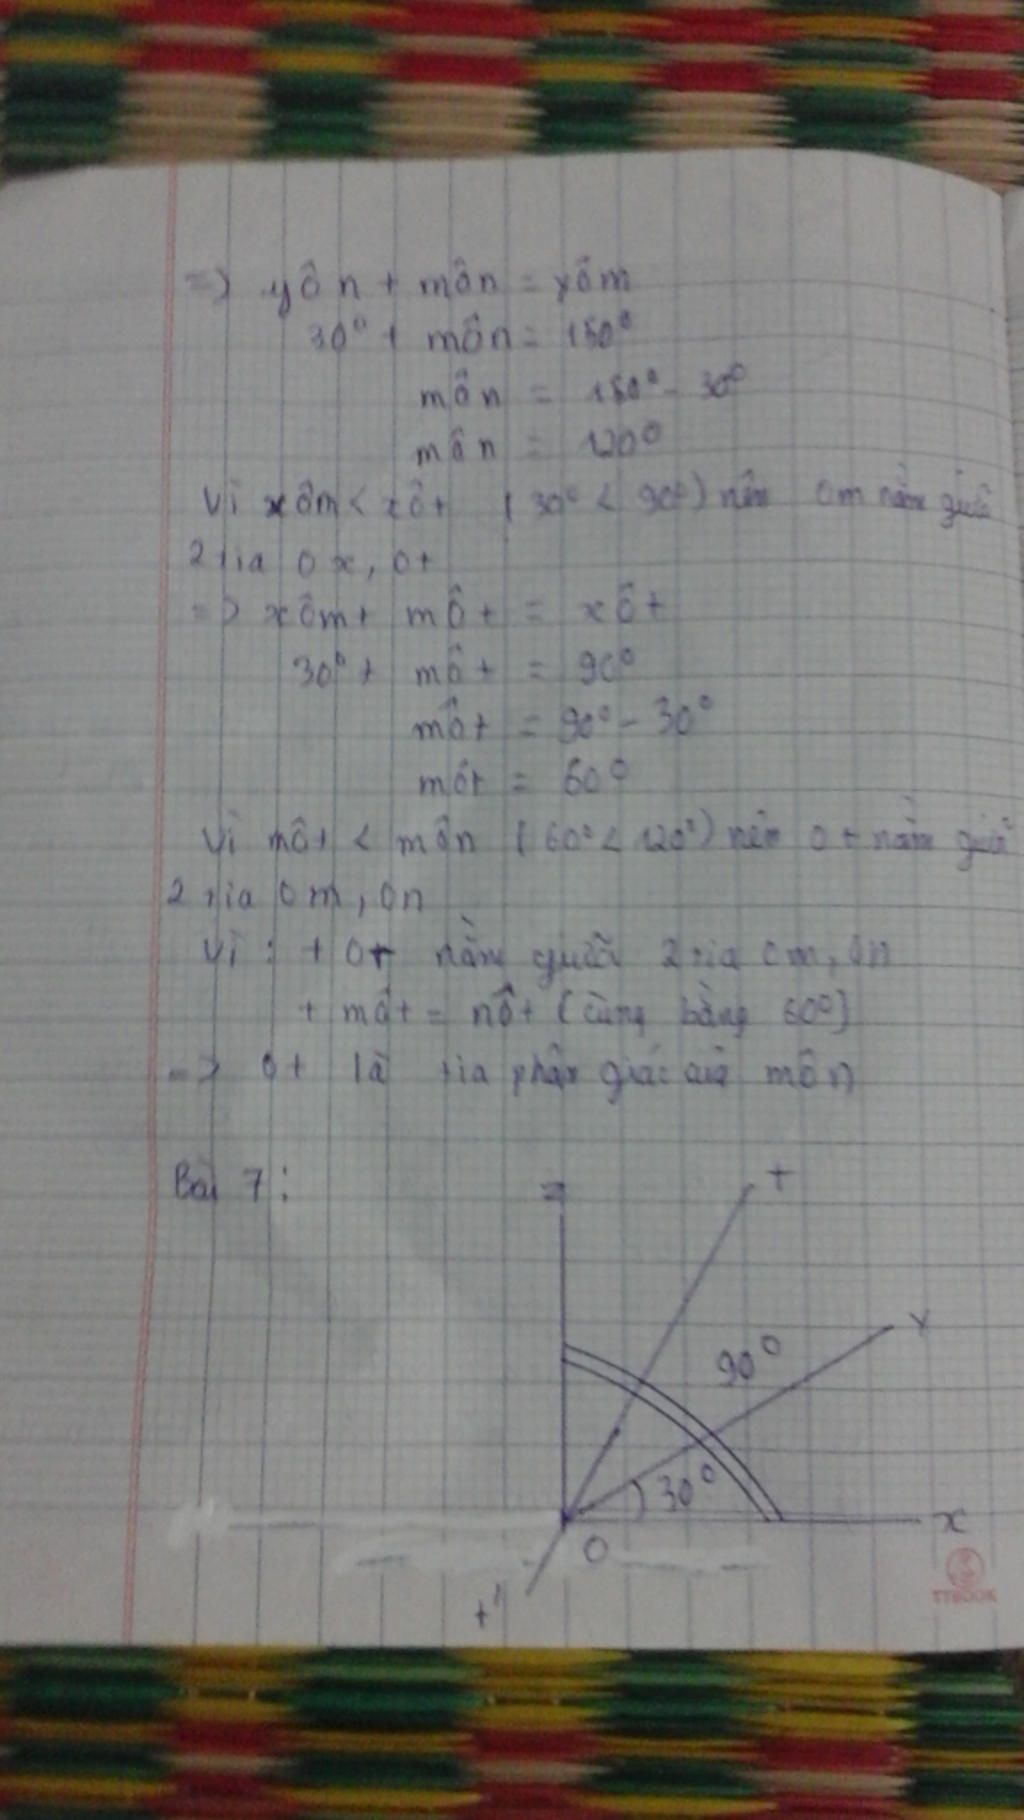 => yÔn + mÔn = yÔm
30° + mÔn = 150°
mÔn = 150° - 30°
mÔn = 120°
Vì xÔm < xÔt (30° < 90°) nên Om nằm giữa
2 tia Ox, Ot
=> xÔm + mÔt = xÔt
30° + mÔt = 90°
mÔt = 90° - 30°
mÔt = 60°
Vì mÔt < mÔn (60° < 120°) nên Ot nằm giữa
2 tia Om, On
Vì : + Ot nằm giữa 2 tia Om, On
+ mÔt = nÔt (cùng bằng 60°)
=> Ot là tia phân giác của mÔn
Bài 7:
z
t
y
90°
30°
x
O
t'
TTBOOK